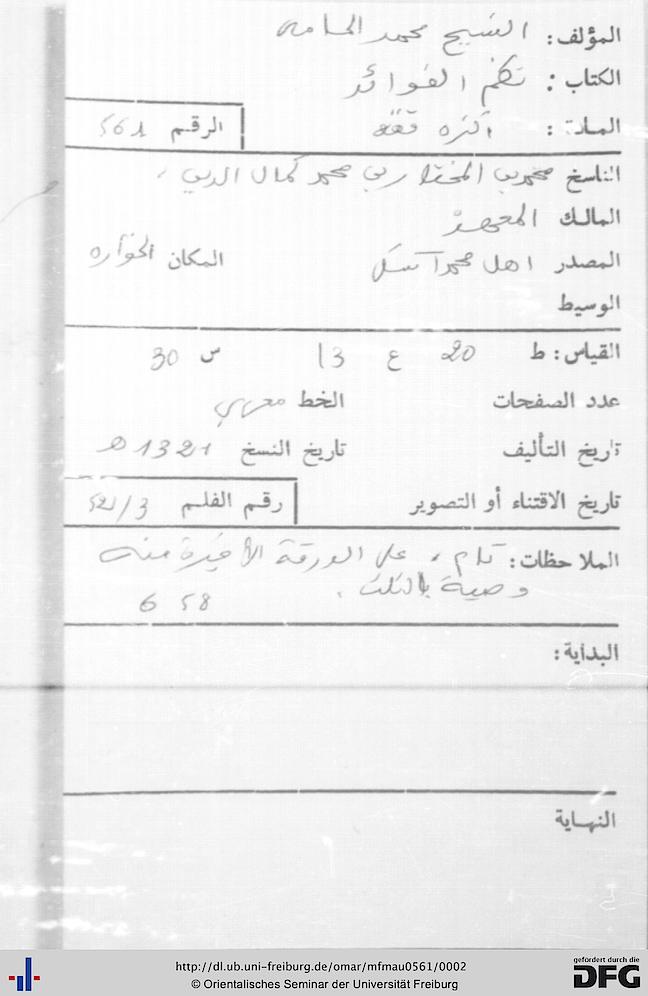 المؤلف: الشيخ محمد المامى
الكتاب: نظم الفوائد
المادة: فقه الرقم 561
الناسخ محمد بن المختار بن محمد كمال الدين
المالك المعهد
المصدر اهل محمد المكان
الوسيط
القياس: ط 20 ع 13 س 30
عدد الصفحات الخط مغربي
تاريخ التأليف تاريخ النسخ 1321 هـ
تاريخ الاقتناء أو التصوير رقم الفلم
الملاحظات: تام، على الورقة الأخيرة منه
وصية بالثلث.
658
البداية:
النهاية
http://dl.ub.uni-freiburg.de/omar/mfmau0561/0002
© Orientalisches Seminar der Universität Freiburg
gefördert durch die
DFG